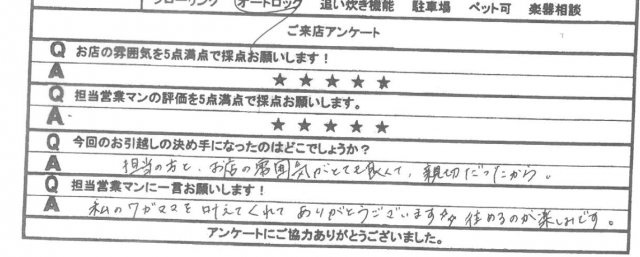 フローリング オートロック 追い炊き機能 駐車場 ペット可 楽器相談
ご来店アンケート
Q お店の雰囲気を5点満点で採点お願いします！
A ★ ★ ★ ★ ★
Q 担当営業マンの評価を5点満点で採点お願いします。
A ★ ★ ★ ★ ★
Q 今回のお引越しの決め手になったのはどこでしょうか？
A 担当の方と、お店の雰囲気がとても良くて、親切だったから。
Q 担当営業マンに一言お願いします！
A 私のワガママを叶えてくれてありがとうございます 住めるのが楽しみです。
アンケートにご協力ありがとうございました。